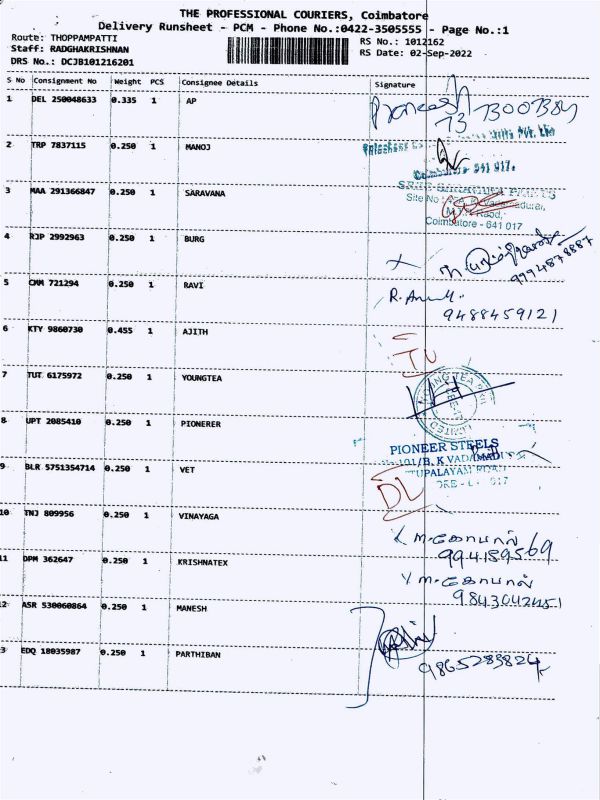 THE PROFESSIONAL COURIERS, Coimbatore
Delivery Runsheet - PCM - Phone No.:0422-3505555 - Page No.:1
Route: THOPPAMPATTI
Staff: RADGHAKRISHNAN
DRS No.: DCJB101216201
RS No.: 1012162
RS Date: 02-Sep-2022
S No Consignment No Weight PCS Consignee Details Signature
1 DEL 250048633 0.335 1 AP
2 TRP 7837115 0.250 1 MANOJ
Coimbatore 641 017.
3 MAA 291366847 0.250 1 SARAVANA
Site No
Coimbatore - 641 017
4 RJP 2992963 0.250 1 BURG
9994878887
5 CMM 721294 0.250 1 RAVI
9488459121
6 KTY 9860730 0.455 1 AJITH
7 TUT 6175972 0.250 1 YOUNGTEA
8 UPT 2085410 0.250 1 PIONERER
PIONEER STEELS
9 BLR 5751354714 0.250 1 VET
DL
10 TNJ 809956 0.250 1 VINAYAGA
ம. கோபால்
11 DPM 362647 0.250 1 KRISHNATEX
ம. கோபால்
12 ASR 530060864 0.250 1 MANESH
3 EDQ 18035987 0.250 1 PARTHIBAN